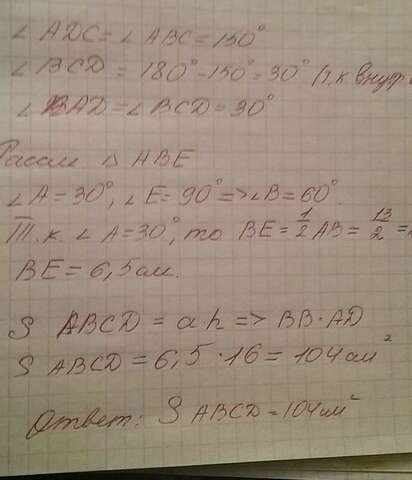 ∠ ADC = ∠ ABC = 150°
∠ BCD = 180° - 150° = 30° (т.к внутр
∠ BAD = ∠ BCD = 30°
Рассм △ ABE
∠ A = 30°, ∠ E = 90° => ∠ B = 60°.
Т.к. ∠ A = 30°, то BE = 1/2 AB = 13/2 =
BE = 6,5 см.
S ABCD = ah => BB · AD
S ABCD = 6,5 · 16 = 104 см²
Ответ: S ABCD = 104 см²